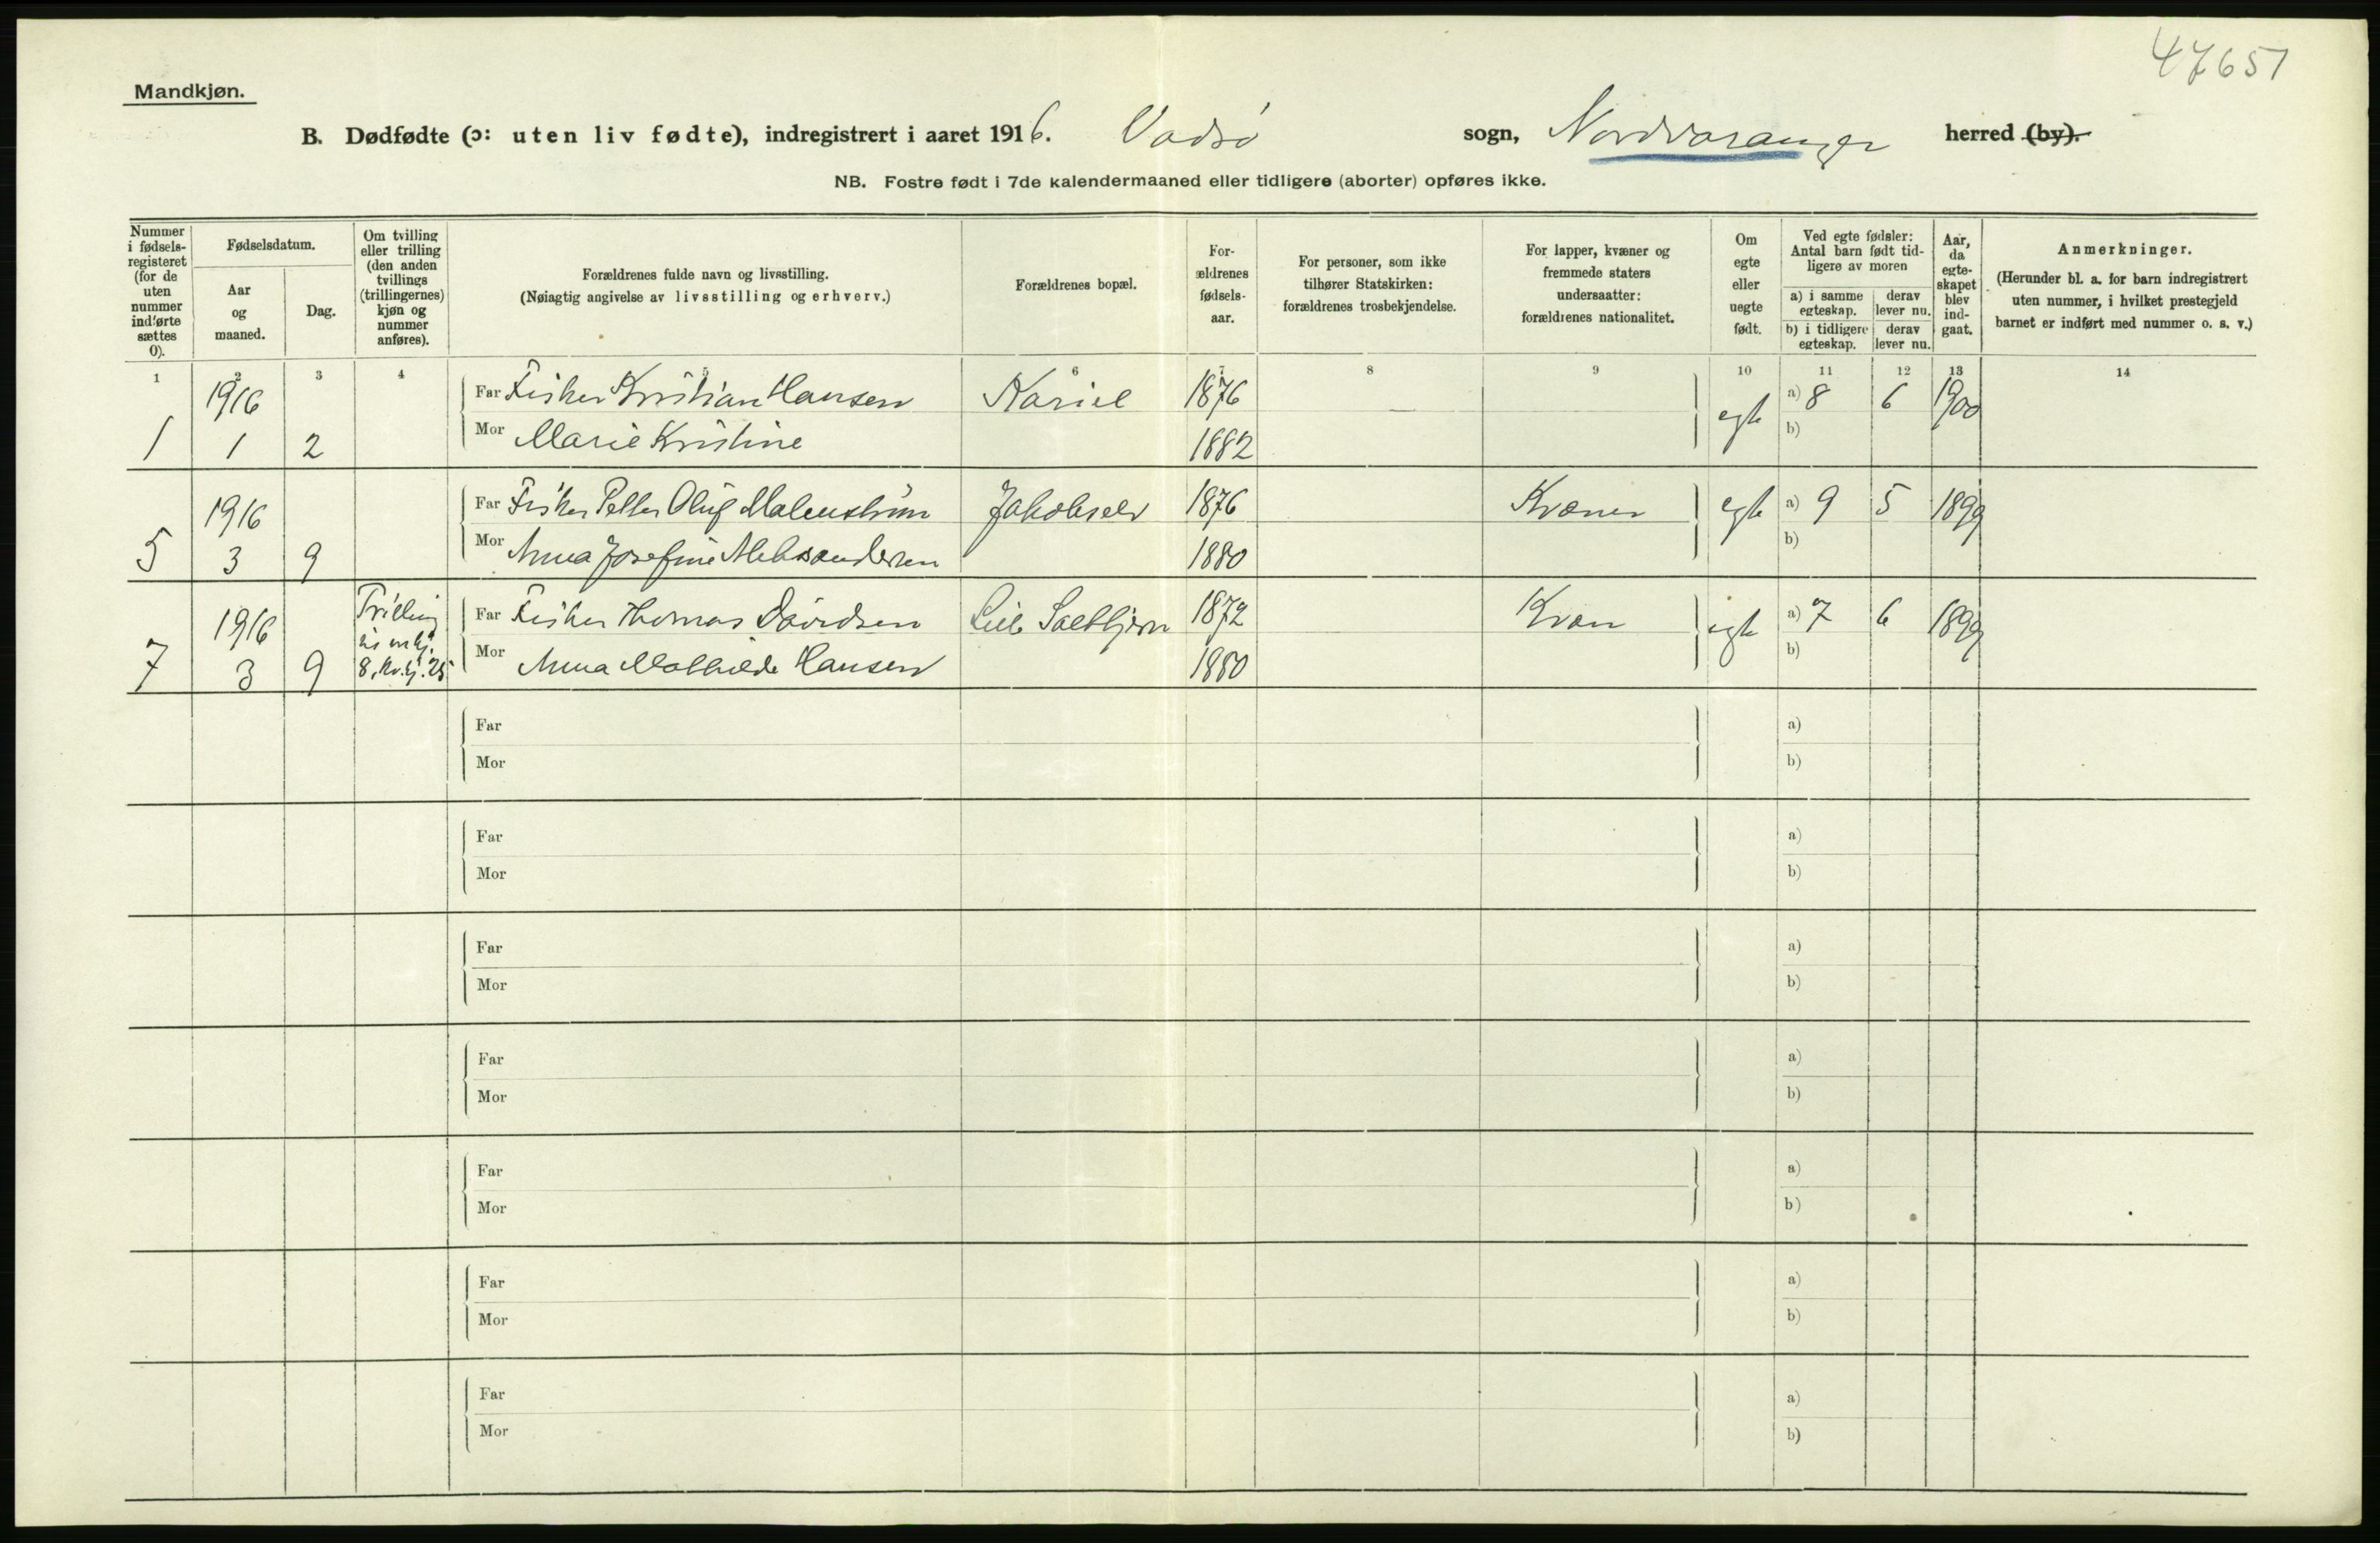 47651
Mandkjøn.
B. Dødfødte (ɔ: uten liv fødte), indregistrert i aaret 1916. Vadsø sogn, Nordvaranger herred (by).
NB. Fostre født i 7de kalendermaaned eller tidligere (aborter) opføres ikke.
Nummer
i fødsels-
registeret
(for de
uten
nummer
indførte
sættes
0).
Fødselsdatum.
Aar
og
maaned.
Dag.
Om tvilling
eller trilling
(den anden
tvillings
(trillingernes)
kjøn og
nummer
anføres).
Forældrenes fulde navn og livsstilling.
(Nøiagtig angivelse av livsstilling og erhverv.)
Forældrenes bopæl.
For-
ældrenes
fødsels-
aar.
For personer, som ikke
tilhører Statskirken:
forældrenes trosbekjendelse.
For lapper, kvæner og
fremmede staters
undersaatter:
forældrenes nationalitet.
Om
egte
eller
uegte
født.
Ved egte fødsler:
Antal barn født tid-
ligere av moren
a) i samme
egteskap.
derav
lever nu.
b) i tidligere
egteskap.
derav
lever nu.
Aar,
da
egte-
skapet
blev
ind-
gaat.
Anmerkninger.
(Herunder bl. a. for barn indregistrert
uten nummer, i hvilket prestegjeld
barnet er indført med nummer o. s. v.)
1 2 3 4 5 6 7 8 9 10 11 12 13 14
1916 Far Fisker Kristian Hansen Kariel 1876 — egte a) 8 6 1900
1 1 2 Mor Marie Kristine 1882 b)
1916 Far Fisker Petter Oluf Malenström Jakobselv 1876 Kvæner egte a) 9 5 1899
5 3 9 Mor Anna Josefine Aleksandersen 1880 b)
1916 Trilling Far Fisker Thomas Davidsen 1872 Kvæn egte a) 7 6 1899
7 3 9 8, kv.kj. 25 Mor Anna Mathilde Hansen 1880 b)
Far a)
Mor b)
Far a)
Mor b)
Far a)
Mor b)
Far a)
Mor b)
Far a)
Mor b)
Far a)
Mor b)
Far a)
Mor b)